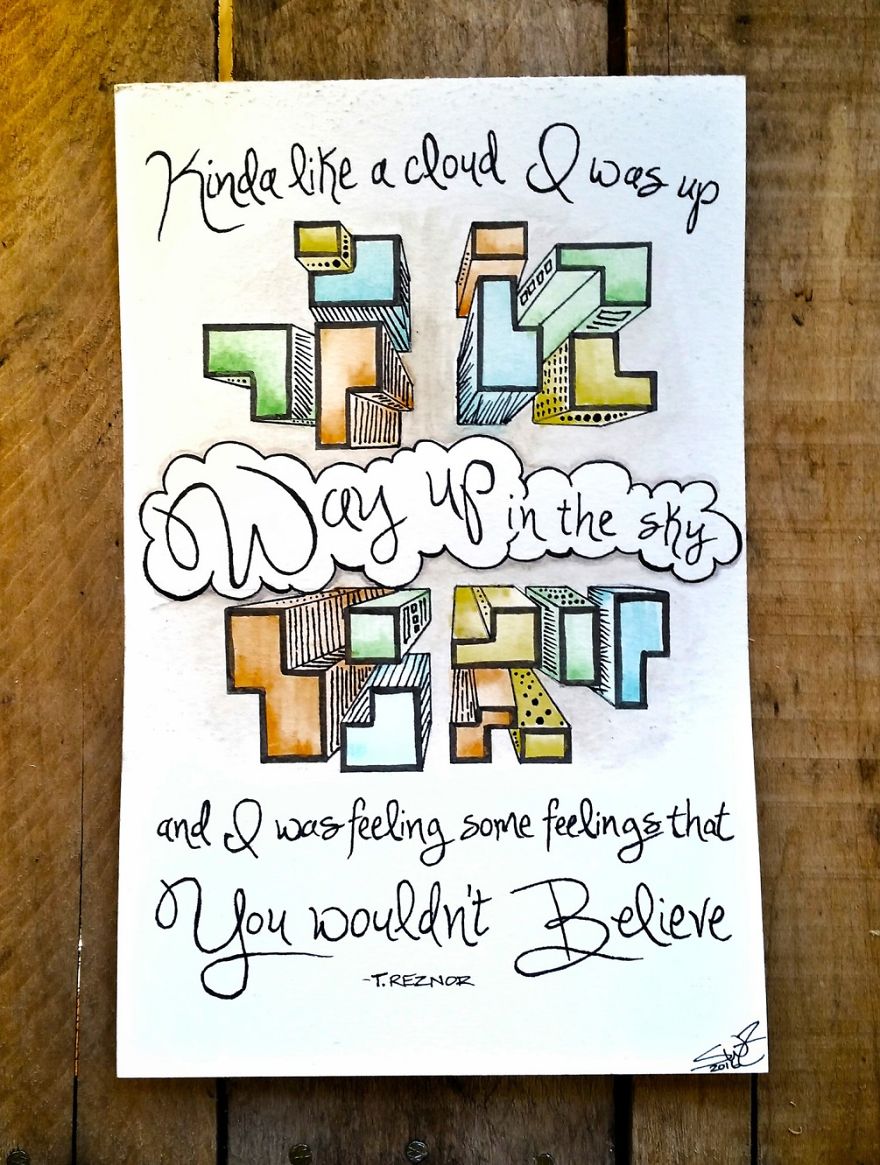 Kinda like a cloud I was up
Way up in the sky
and I was feeling some feelings that
You wouldn't Believe
-T. REZNOR